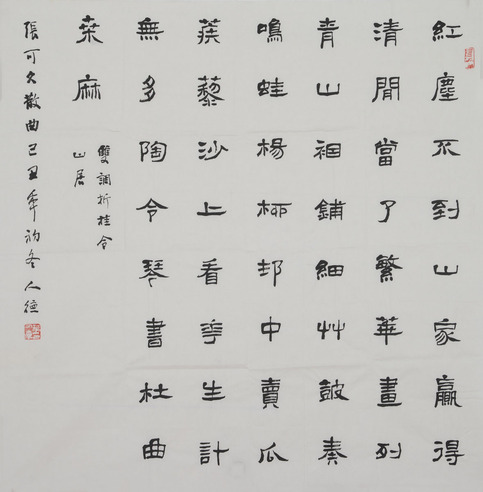 紅塵不到山家贏得
清閒當了繁華畫列
青山裀鋪細艸鼓奏
鳴蛙楊柳邨中賣瓜
蒺藜沙上看花生計
無多陶令琴書杜曲
桑麻
雙調折桂令
山居
張可久散曲己丑年初冬人德